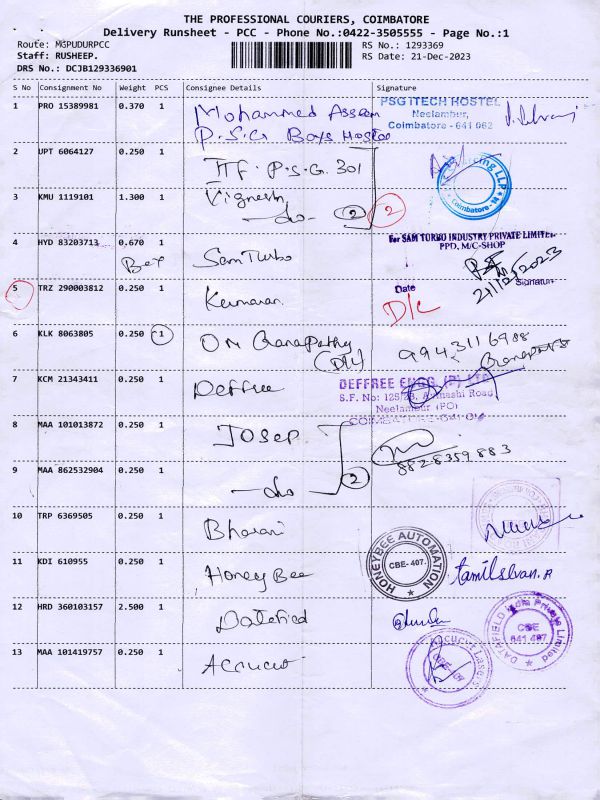 THE PROFESSIONAL COURIERS, COIMBATORE
Delivery Runsheet - PCC - Phone No.:0422-3505555 - Page No.:1
Route: MGPUDURPCC
RS No.: 1293369
Staff: RUSHEEP.
RS Date: 21-Dec-2023
DRS No.: DCJB129336901
S No Consignment No Weight PCS Consignee Details Signature
1 PRO 15389981 0.370 1 Mohammed Asseem
P.S.G Boys Hostel
PSG ITECH HOSTEL
Neelambur,
Coimbatore - 641 062
2 UPT 6064127 0.250 1 IIF. P.S.G. 301
3 KMU 1119101 1.300 1 Vignesh
-do- 2 2
Coimbatore
4 HYD 83203713 0.670 1 Sam Turbo
Box
For SAM TURBO INDUSTRY PRIVATE LIMITED
PPD, M/C-SHOP
21/12/2023
Date Signature
5 TRZ 290003812 0.250 1 Kumaran D/L
6 KLK 8063805 0.250 1 OM Ganapathy
9943116988
Ganapathy
7 KCM 21343411 0.250 1 Deffree
DEFFREE ENGG. (P) LTD
S.F. No: 125/2B, Avinashi Road
Neelambur (PO)
COIMBATORE-641 014
8 MAA 101013872 0.250 1 Josep.
8828359883
9 MAA 862532904 0.250 1 -do- 2
10 TRP 6369505 0.250 1 Bharani
11 KDI 610955 0.250 1 HoneyBee
HONEYBEE AUTOMATION
CBE-407.
Tamilselvan.R
12 HRD 360103157 2.500 1 Datafied
DATAFIELD India Private Limited
CBE
641 407
13 MAA 101419757 0.250 1 Accucut
Accucut Lasers